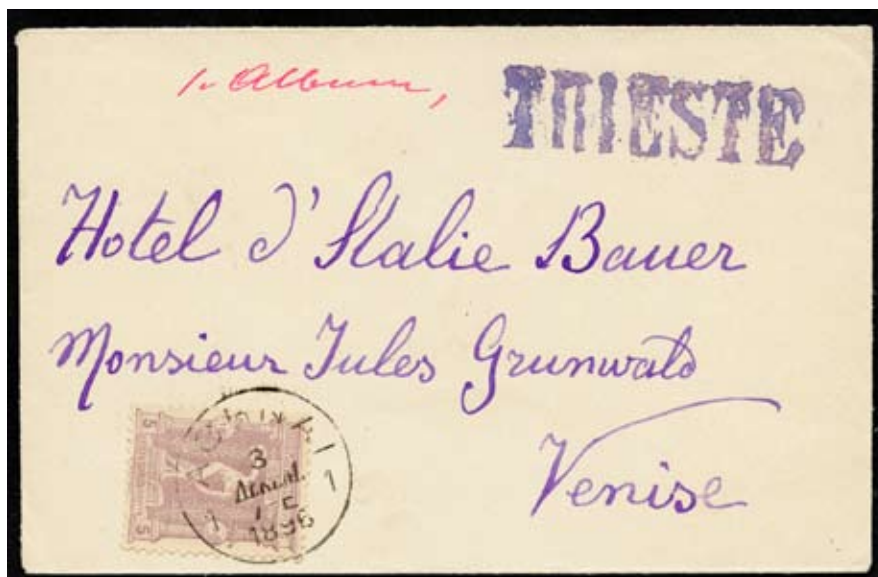 1. Album,
TRIESTE
Hotel d'Italie Bauer
Monsieur Jules Grunwald
Venise
5
5
3
1
1
1896